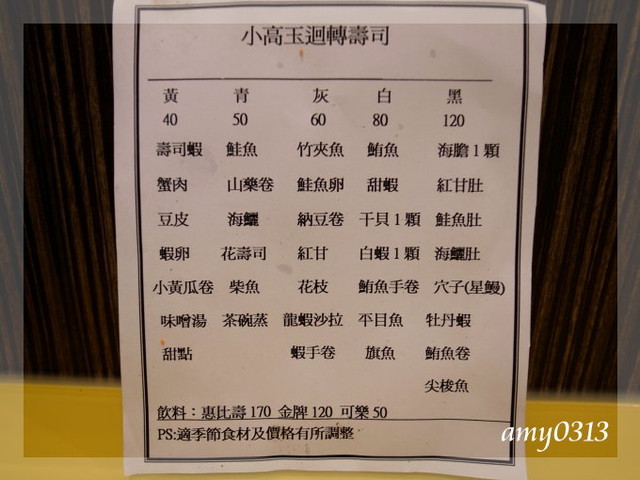 小高玉迴轉壽司
黃 青 灰 白 黑
40 50 60 80 120
壽司蝦 鮭魚 竹夾魚 鮪魚 海膽1顆
蟹肉 山藥卷 鮭魚卵 甜蝦 紅甘肚
豆皮 海鱺 納豆卷 干貝1顆 鮭魚肚
蝦卵 花壽司 紅甘 白蝦1顆 海鱺肚
小黃瓜卷 柴魚 花枝 鮪魚手卷 穴子(星鰻)
味噌湯 茶碗蒸 龍蝦沙拉 平目魚 牡丹蝦
甜點 蝦手卷 旗魚 鮪魚卷
尖梭魚
飲料：惠比壽170 金牌120 可樂50
PS:適季節食材及價格有所調整
amy0313